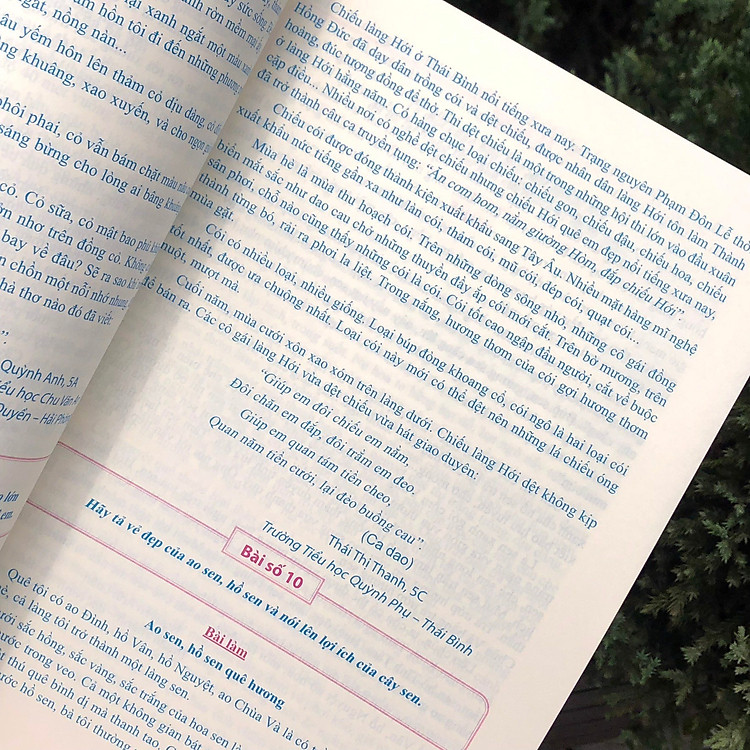 gắt, nồng nàn...
âu yếm hôn lên thảm cỏ dịu dàng, cỏ
khuâng, xao xuyến, và cho ngọn
phôi phai, cỏ vẫn bám chặt màu nâu
sáng bừng cho lòng ai bâng khuâng
có. Cỏ sữa, cỏ mật bao phủ
nhơ trên đồng cỏ. Không
bay về đâu? Sẽ ra sao khi
chốn một nỗi nhớ nhung
hà thơ nào đó đã viết:
Quỳnh Anh, 5A
ểu học Chu Văn A
Quyền – Hải Phò
lớn
em.
Chiếu làng Hới ở Thái Bình nổi tiếng xưa nay. Trạng nguyên Phạm Đôn Lễ th
Hồng Đức đã dạy dân trồng cói và dệt chiếu, được nhân dân làng Hới tôn làm Thành
hoàng, đúc tượng đồng để thờ. Thi dệt chiếu là một trong những hội thi lớn vào đầu xuân
ở làng Hới hằng năm. Có hàng chục loại chiếu: chiếu gon, chiếu đậu, chiếu hoa, chiếu
cạp điều... Nhiều nơi có nghề dệt chiếu nhưng chiếu Hới quê em đẹp nổi tiếng xưa nay,
đã trở thành câu ca truyền tụng: "Ăn cơm hom, nằm giường Hòm, đắp chiếu Hới".
Chiếu cói được đóng thành kiện xuất khẩu sang Tây Âu. Nhiều mặt hàng mĩ nghệ
xuất khẩu nức tiếng gần xa như làn cói, thảm cói, mũ cói, dép cói, quạt cói...
Mùa hè là mùa thu hoạch cói. Trên những dòng sông nhỏ, những cô gái đồng
biển mắt sắc như dao cau chở những thuyền đầy ắp cói mới cắt. Trên bờ mương, trên
sân phơi, chỗ nào cũng thấy những cói là cói. Cói tốt cao ngập đầu người, cắt về buộc
thành từng bó, rải ra phơi la liệt. Trong nắng, hương thơm của cói gợi hương thơm
mùa gặt.
Cói có nhiều loại, nhiều giống. Loại búp đòng khoang cổ, cói ngò là hai loại cói
tốt nhất, được ưa chuộng nhất. Loại cói này mới có thể dệt nên những lá chiếu óng
muột, mượt mà
Cuối năm, mùa cưới xôn xao xóm trên làng dưới. Chiếu làng Hới dệt không kịp
để bán ra. Các cô gái làng Hới vừa dệt chiếu vừa hát giao duyên:
"Giúp em đôi chiếu em nằm,
Đôi chăn em đắp, đôi trằm em đeo.
Giúp em quan tám tiền cheo,
Quan năm tiền cưới, lại đèo buồng cau".
(Ca dao)
Thái Thị Thanh, 5C
Trường Tiểu học Quỳnh Phụ – Thái Bình
Bài số 10
Hãy tả vẻ đẹp của ao sen, hồ sen và nói lên lợi ích của cây sen.
Bài làm
Ao sen, hồ sen quê hương
Quê tôi có ao Đình, hồ Vân, hồ Nguyệt, ao Chùa Và là có t
è, cả làng tôi trở thành một làng sen.
ưới sắc hồng, sắc vàng, sắc trắng của hoa sen l
ước trong veo. Cả một không gian bát
thú quê bình dị mà thanh tao.
ước hồ sen, bà tôi thường